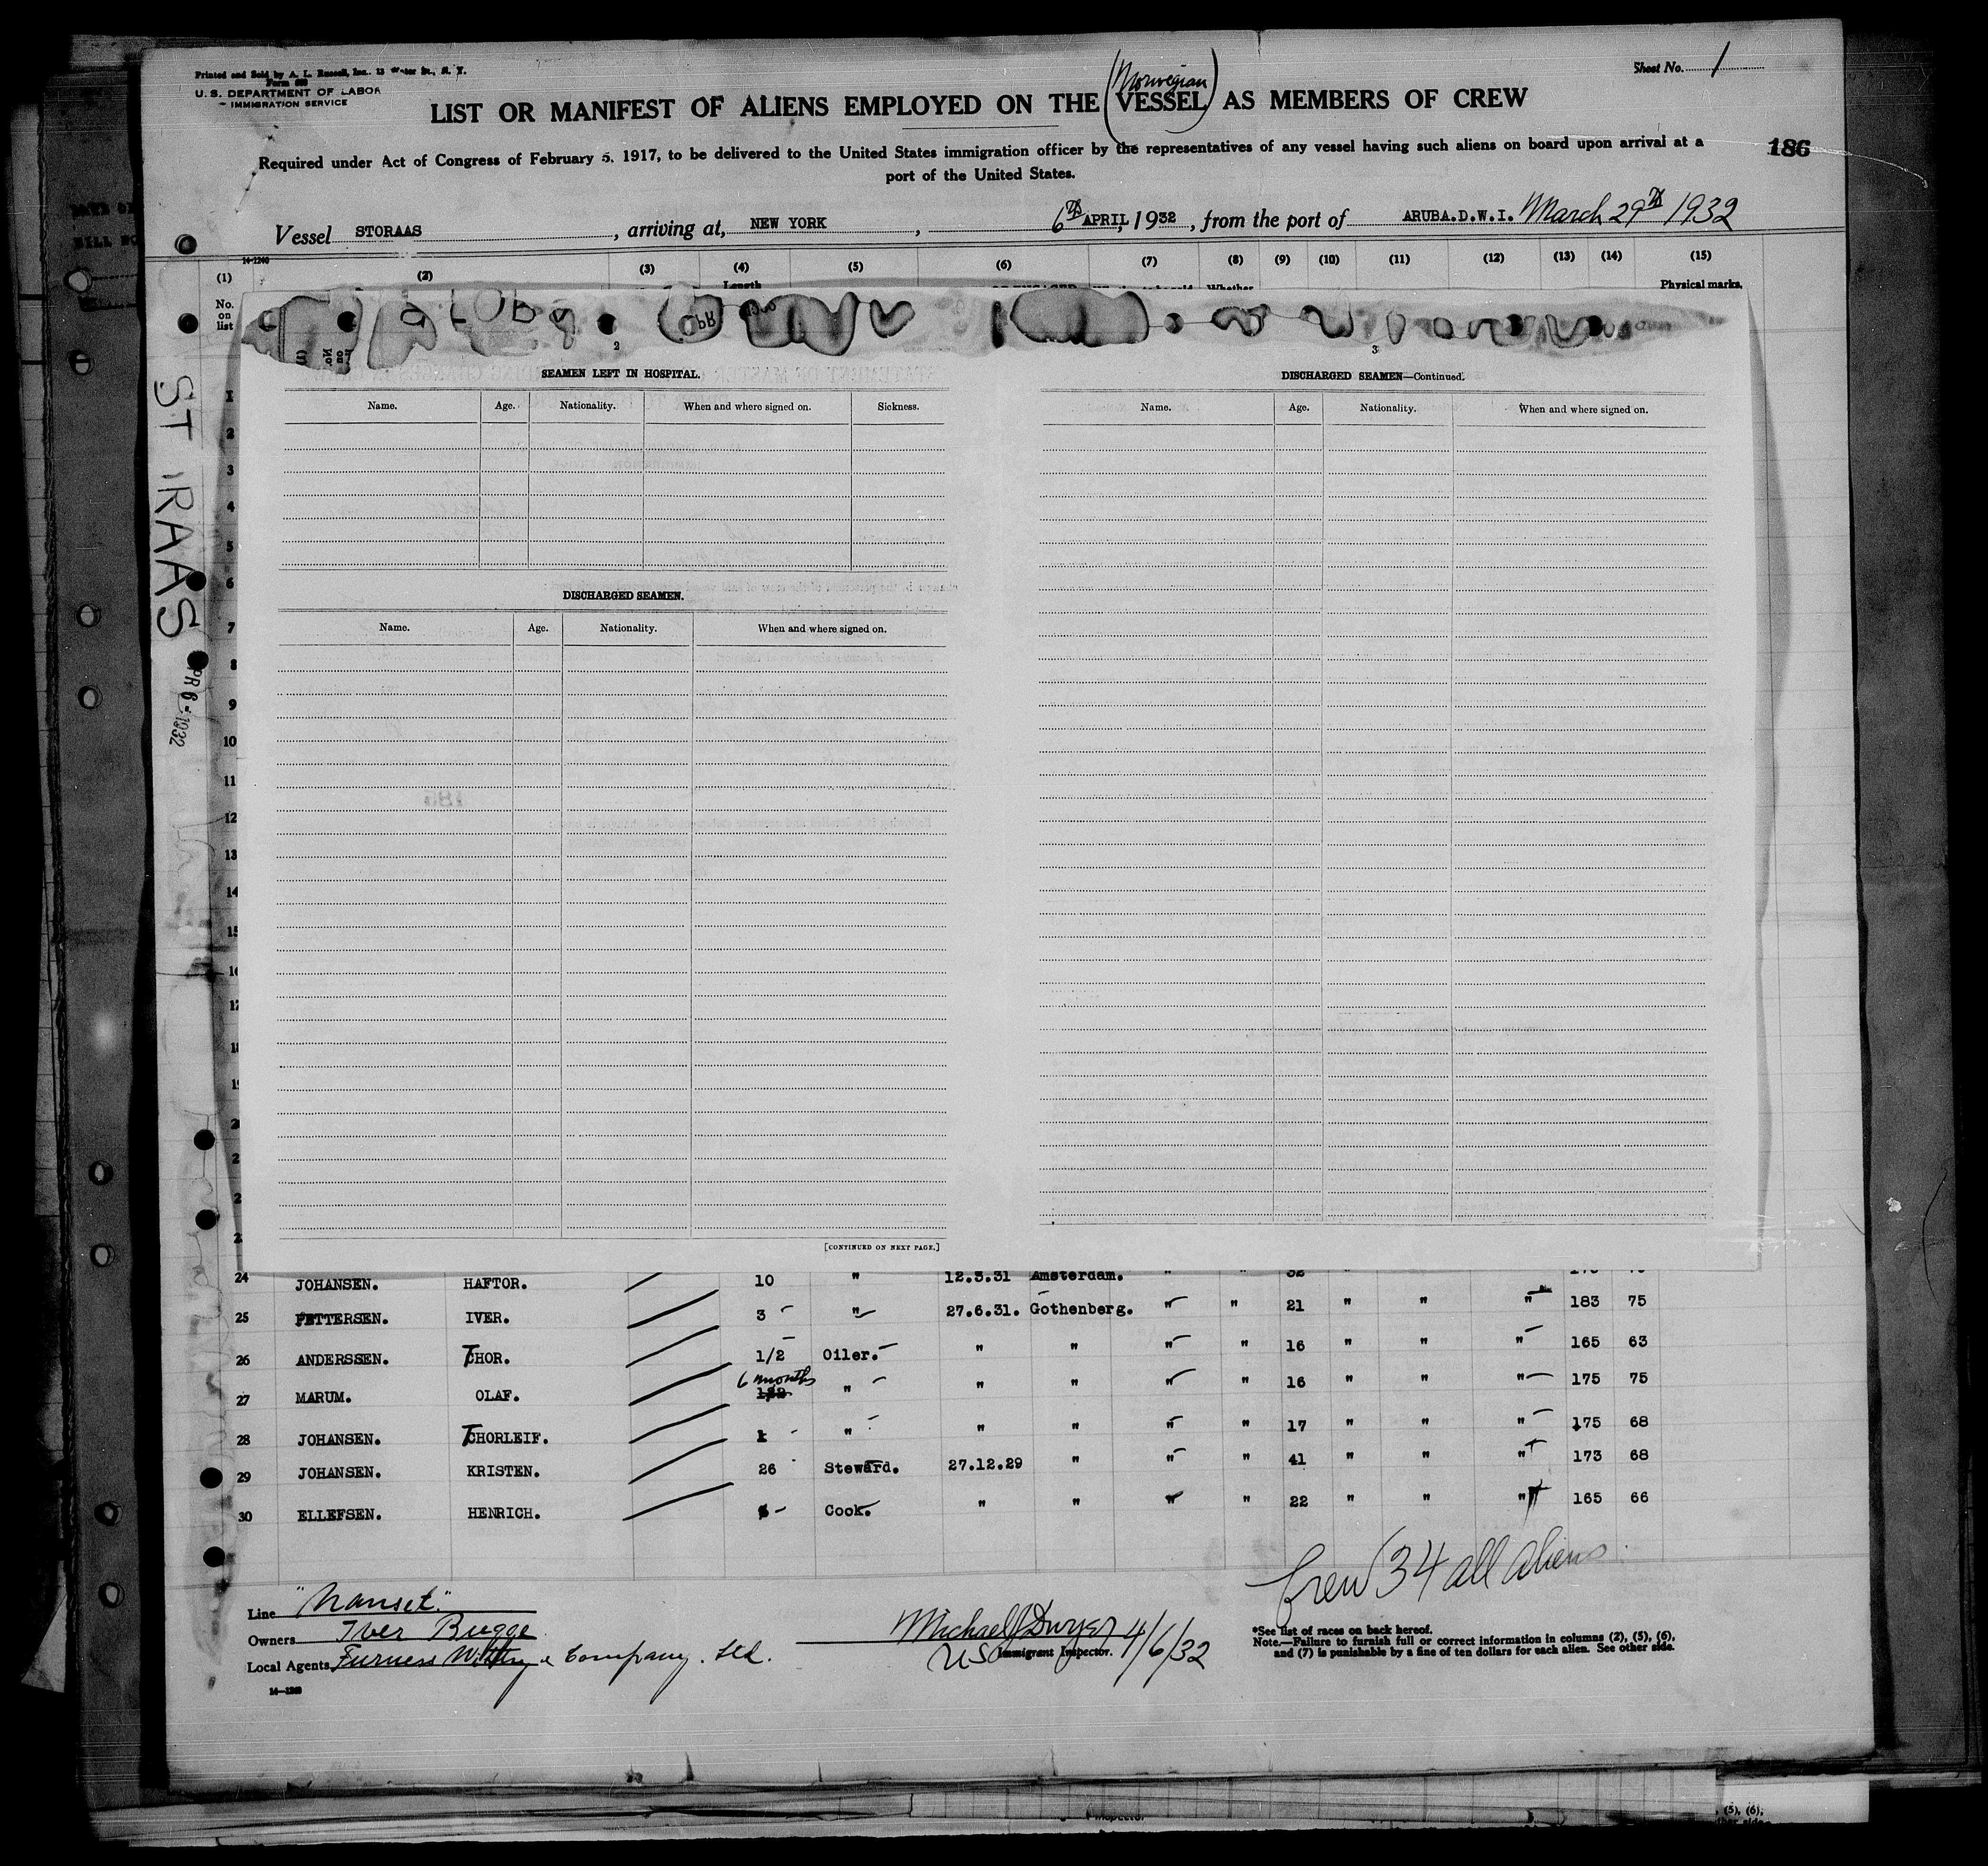 Printed and Sold by A. L. Russell, Inc., 13 Water St., N. Y.
U. S. DEPARTMENT OF LABOR
IMMIGRATION SERVICE
Sheet No. 1
(Norwegian)
LIST OR MANIFEST OF ALIENS EMPLOYED ON THE VESSEL AS MEMBERS OF CREW
Required under Act of Congress of February 5, 1917, to be delivered to the United States immigration officer by the representatives of any vessel having such aliens on board upon arrival at a
port of the United States.
186
Vessel STORAAS, arriving at, NEW YORK, 6th APRIL, 1932, from the port of ARUBA.D.W.I. March 29th 1932
14-1240
(1) (2) (3) (4) (5) (6) (7) (8) (9) (10) (11) (12) (13) (14) (15)
Length Whether Physical marks,
No. on list
ST IRAAS
PR 6 - 1932
2
SEAMEN LEFT IN HOSPITAL.
Name. Age. Nationality. When and where signed on. Sickness.
DISCHARGED SEAMEN.
Name. Age. Nationality. When and where signed on.
[CONTINUED ON NEXT PAGE.]
3
DISCHARGED SEAMEN—Continued.
Name. Age. Nationality. When and where signed on.
2
3
4
5
6
7
8
9
10
11
12
13
14
24 JOHANSEN. HAFTOR. 10 " 12.3.31 Amsterdam. " "
25 PETTERSEN. IVER. 3 - " 27.6.31. Gothenberg. " " 21 " " " 183 75
26 ANDERSSEN. THOR. 1/2 Oiler. " " " " 16 " " " 165 63
27 MARUM. OLAF. 6 months " " " " " 16 " " " 175 75
28 JOHANSEN. THORLEIF. 1 - " " " " " 17 " " " 175 68
29 JOHANSEN. KRISTEN. 26 Steward. 27.12.29 " " " 41 " " " 173 68
30 ELLEFSEN. HENRICH. Cook. " " " " 22 " " " 165 66
Crew 34 all aliens
Line "Nanset."
Owners Iver Bugge
Local Agents Furness Withy & Company. Ltd.
14-1240
Michael J Dwyer 4/6/32
US Immigrant Inspector.
*See list of races on back hereof.
Note.—Failure to furnish full or correct information in columns (2), (5), (6),
and (7) is punishable by a fine of ten dollars for each alien. See other side.
Inspector.
, (5), (6),